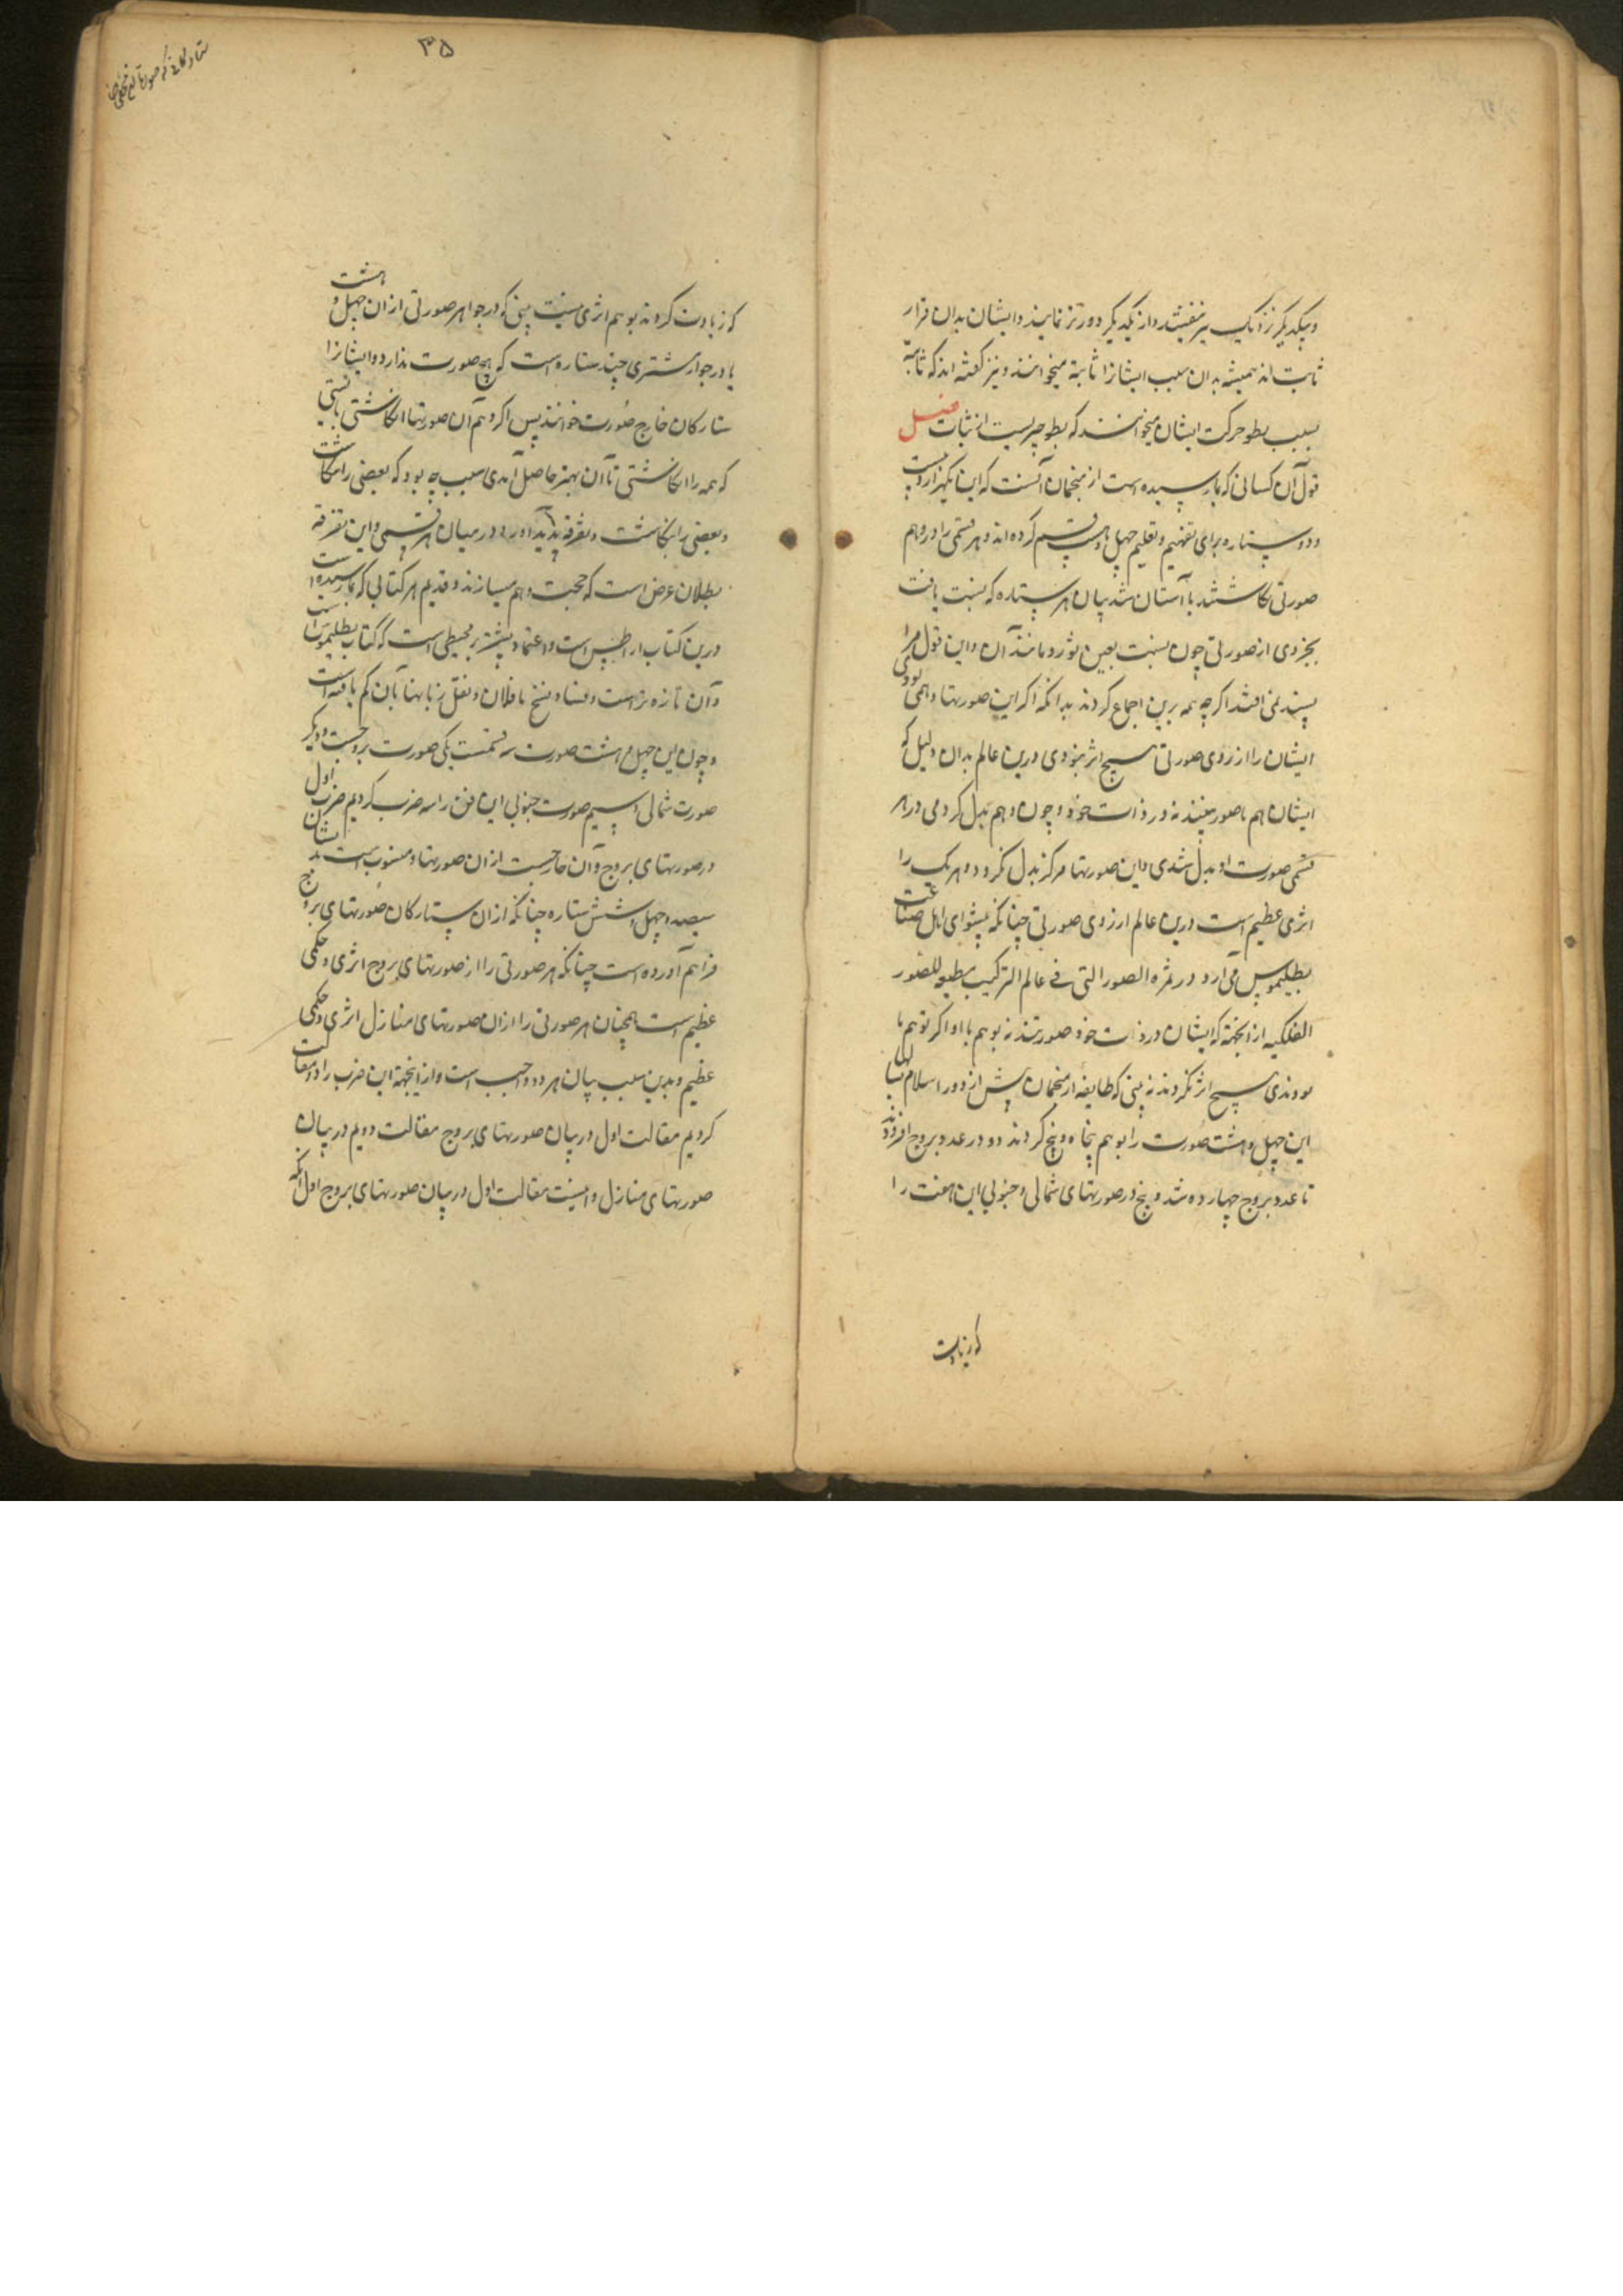 و بیکدیگر نزدیک و از یکدیگر دورتر نمایند و ایشان بدان قرار
ثابت اند همیشه بدان سبب ایشانرا ثابته میخوانند و نیز گفته اند که ثابته
بسبب بطو حرکت ایشان میخوانند که بطو چیزیست از ثبات فصل
قول آن کسانی که بما رسیده است از منجمان آنست که این یکهزار و بیست
و دو ستاره برای تفهیم و تعلیم چهل و هشت قسم کرده اند و هر قسمی را در وهم
صورتی نکاشتند تا آسان شد بیان هر ستاره که نسبت یافت
بجزوی از صورتی چون نسبت بعین ثور و مانند آن و این قول مرا
پسند نمی افتد اگر چه همه برین اجماع کردند بدانکه اگر این صورتها وهمی بودی
ایشان را از روی صورتی هیچ اثر نبودی درین عالم بدان دلیل که
ایشان هم باصورتیند نه در ذات خود و چون وهم بدل کردمی در هر
قسمی صورت او بدل شدی و این صورتها هرگز بدل نکردد و هر یک را
اثری عظیم است درین عالم از روی صورتی چنانکه پیشوای اهل صناعت
بطلیموس می آرد در ثمره الصور التی فی عالم الترکیب مطیعه للصور
الفلکیه از انجهة که ایشان در ذات خود صورتند نه بوهم ما و اگر بوهم ما
بودندی هیچ اثر نکردندی نه بینی که طایفه از منجمان پیش از دور اسلام
این چهل و هشت صورت را بوهم پنجاه و پنج کردند دو در عدد بروج افزودند
تا عدد بروج چهارده شد و پنج در صورتهای شمالی و جنوبی این هفت را
که زیادت
۳۵
ستارگانی که صورتها
که زیادت کردند بوهم اثری نیست بینی که در جوار هر صورتی از ان چهل و هشت
یا در جوار مشتری چند ستاره است که هیچ صورت ندارد و ایشانرا
ستارکان خارج صورت خوانند پس اگر وهم آن صورتها انکاشتی بایستی
که همه را انکاشتی تا آن بهتر حاصل آمدی سبب چه بود که بعضی را نکاشت
و بعضی را نکاشت و تفرقه پدید آورد در میان هر قسمی و این تفرقه
بطلان غرض است که حجت وهم میسازند و قدیم هر کتابی که بما رسیده است
درین کتاب ارسطس است و اعتماد بیشتر بر مجسطی است که کتاب بطلیموس است
و آن تازه تر است و فساد نسخ ناقلان و نقل زبانها بآن کم یافته است
و چون این چهل و هشت صورت سه قسمت یکی صورت بروجست و دیگر
صورت شمالی و سیم صورت جنوبی این فن را سه ضرب کردیم ضرب اول
در صورتهای بروج و آن خارجست از ان صورتها و منسوب است بدیشان
سیصد و چهل و شش ستاره چنانکه از ان ستارکان صورتهای بروج
فراهم آورده است چنانکه هر صورتی را از صورتهای بروج اثری و حکمی
عظیم است همچنان هر صورتی را از ان صورتهای منازل اثری و حکمی
عظیم و بدین سبب بیان هر دو واجب است و از اینجهة این ضرب را دو مقالت
کردیم مقالت اول در بیان صورتهای بروج مقالت دویم در بیان
صورتهای منازل و اینست مقالت اول در بیان صورتهای بروج اول آنکه